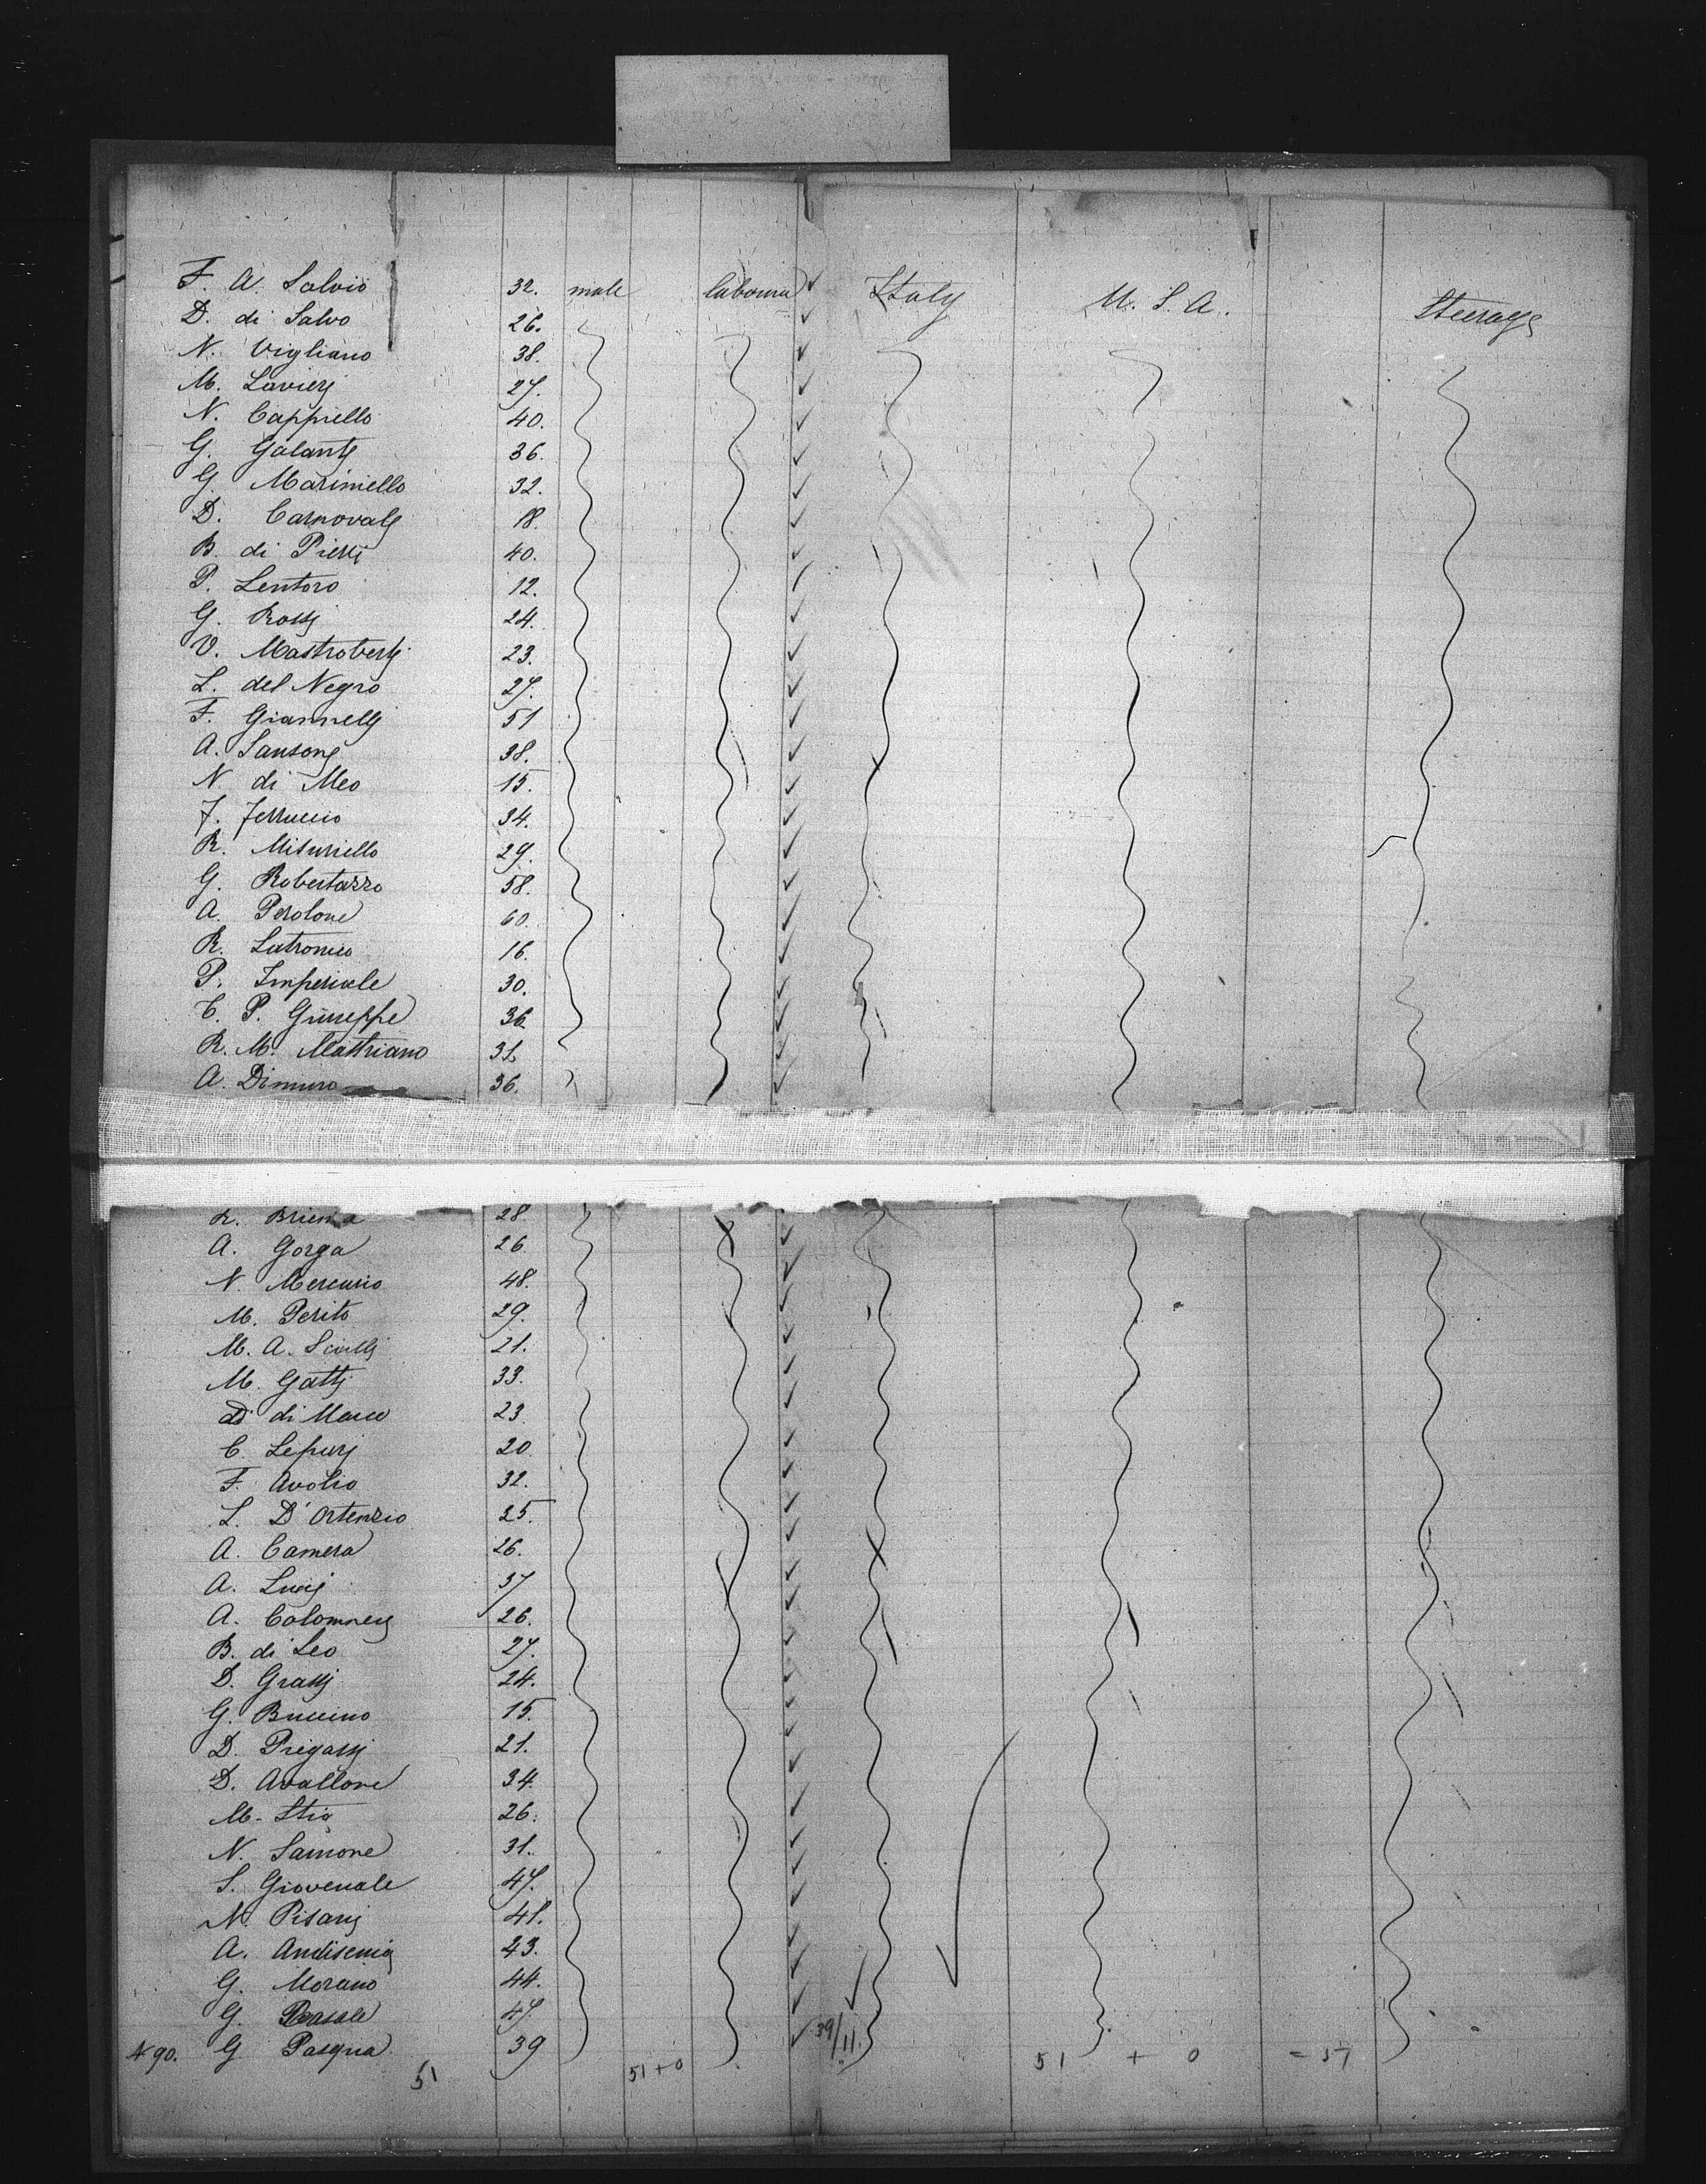 F. A. Salvio 32. male labourer Italy U. S. A. Steerage
D. di Salvo 26.
N. Vigliano 38.
M. Lavieri 27.
N. Cappiello 40.
G. Galante 36.
G. Mariniello 32.
D. Carnovale 18.
B. di Pierri 40.
P. Lentoro 12.
G. Rossi 24.
V. Mastroberti 23.
L. del Negro 27.
F. Giannelli 51
A. Sansone 38.
N. di Meo 15.
F. Ferruccio 34.
R. Misuriello 29.
G. Robertazzo 58.
A. Perolone 60.
R. Latronico 16.
P. Imperiale 30.
C. P. Giuseppe 36
R. M. Mastriano 31.
A. Dimuro 36.
R. 28.
A. Gorga 26
N. Mercurio 48.
M. Perito 29.
M. A. 21.
M. Gatti 33.
di Marco 23.
C. Lepori 20
F. Avolio 32.
L. D'Ortenzio 25.
A. Camera 26.
A. Luigi 37
A. 26.
B. di Leo 27.
D. Grassi 24.
G. Buccino 15.
D. Pregassi 21.
D. Avallone 34.
M. Stio 26.
N. Samone 31.
S. Giovenale 47.
N. Pisani 41.
A. 23.
G. Morano 44.
G. Casale 47.
490. G. Pasqua 39 39/11.
51 51+0 51 + 0 = 51